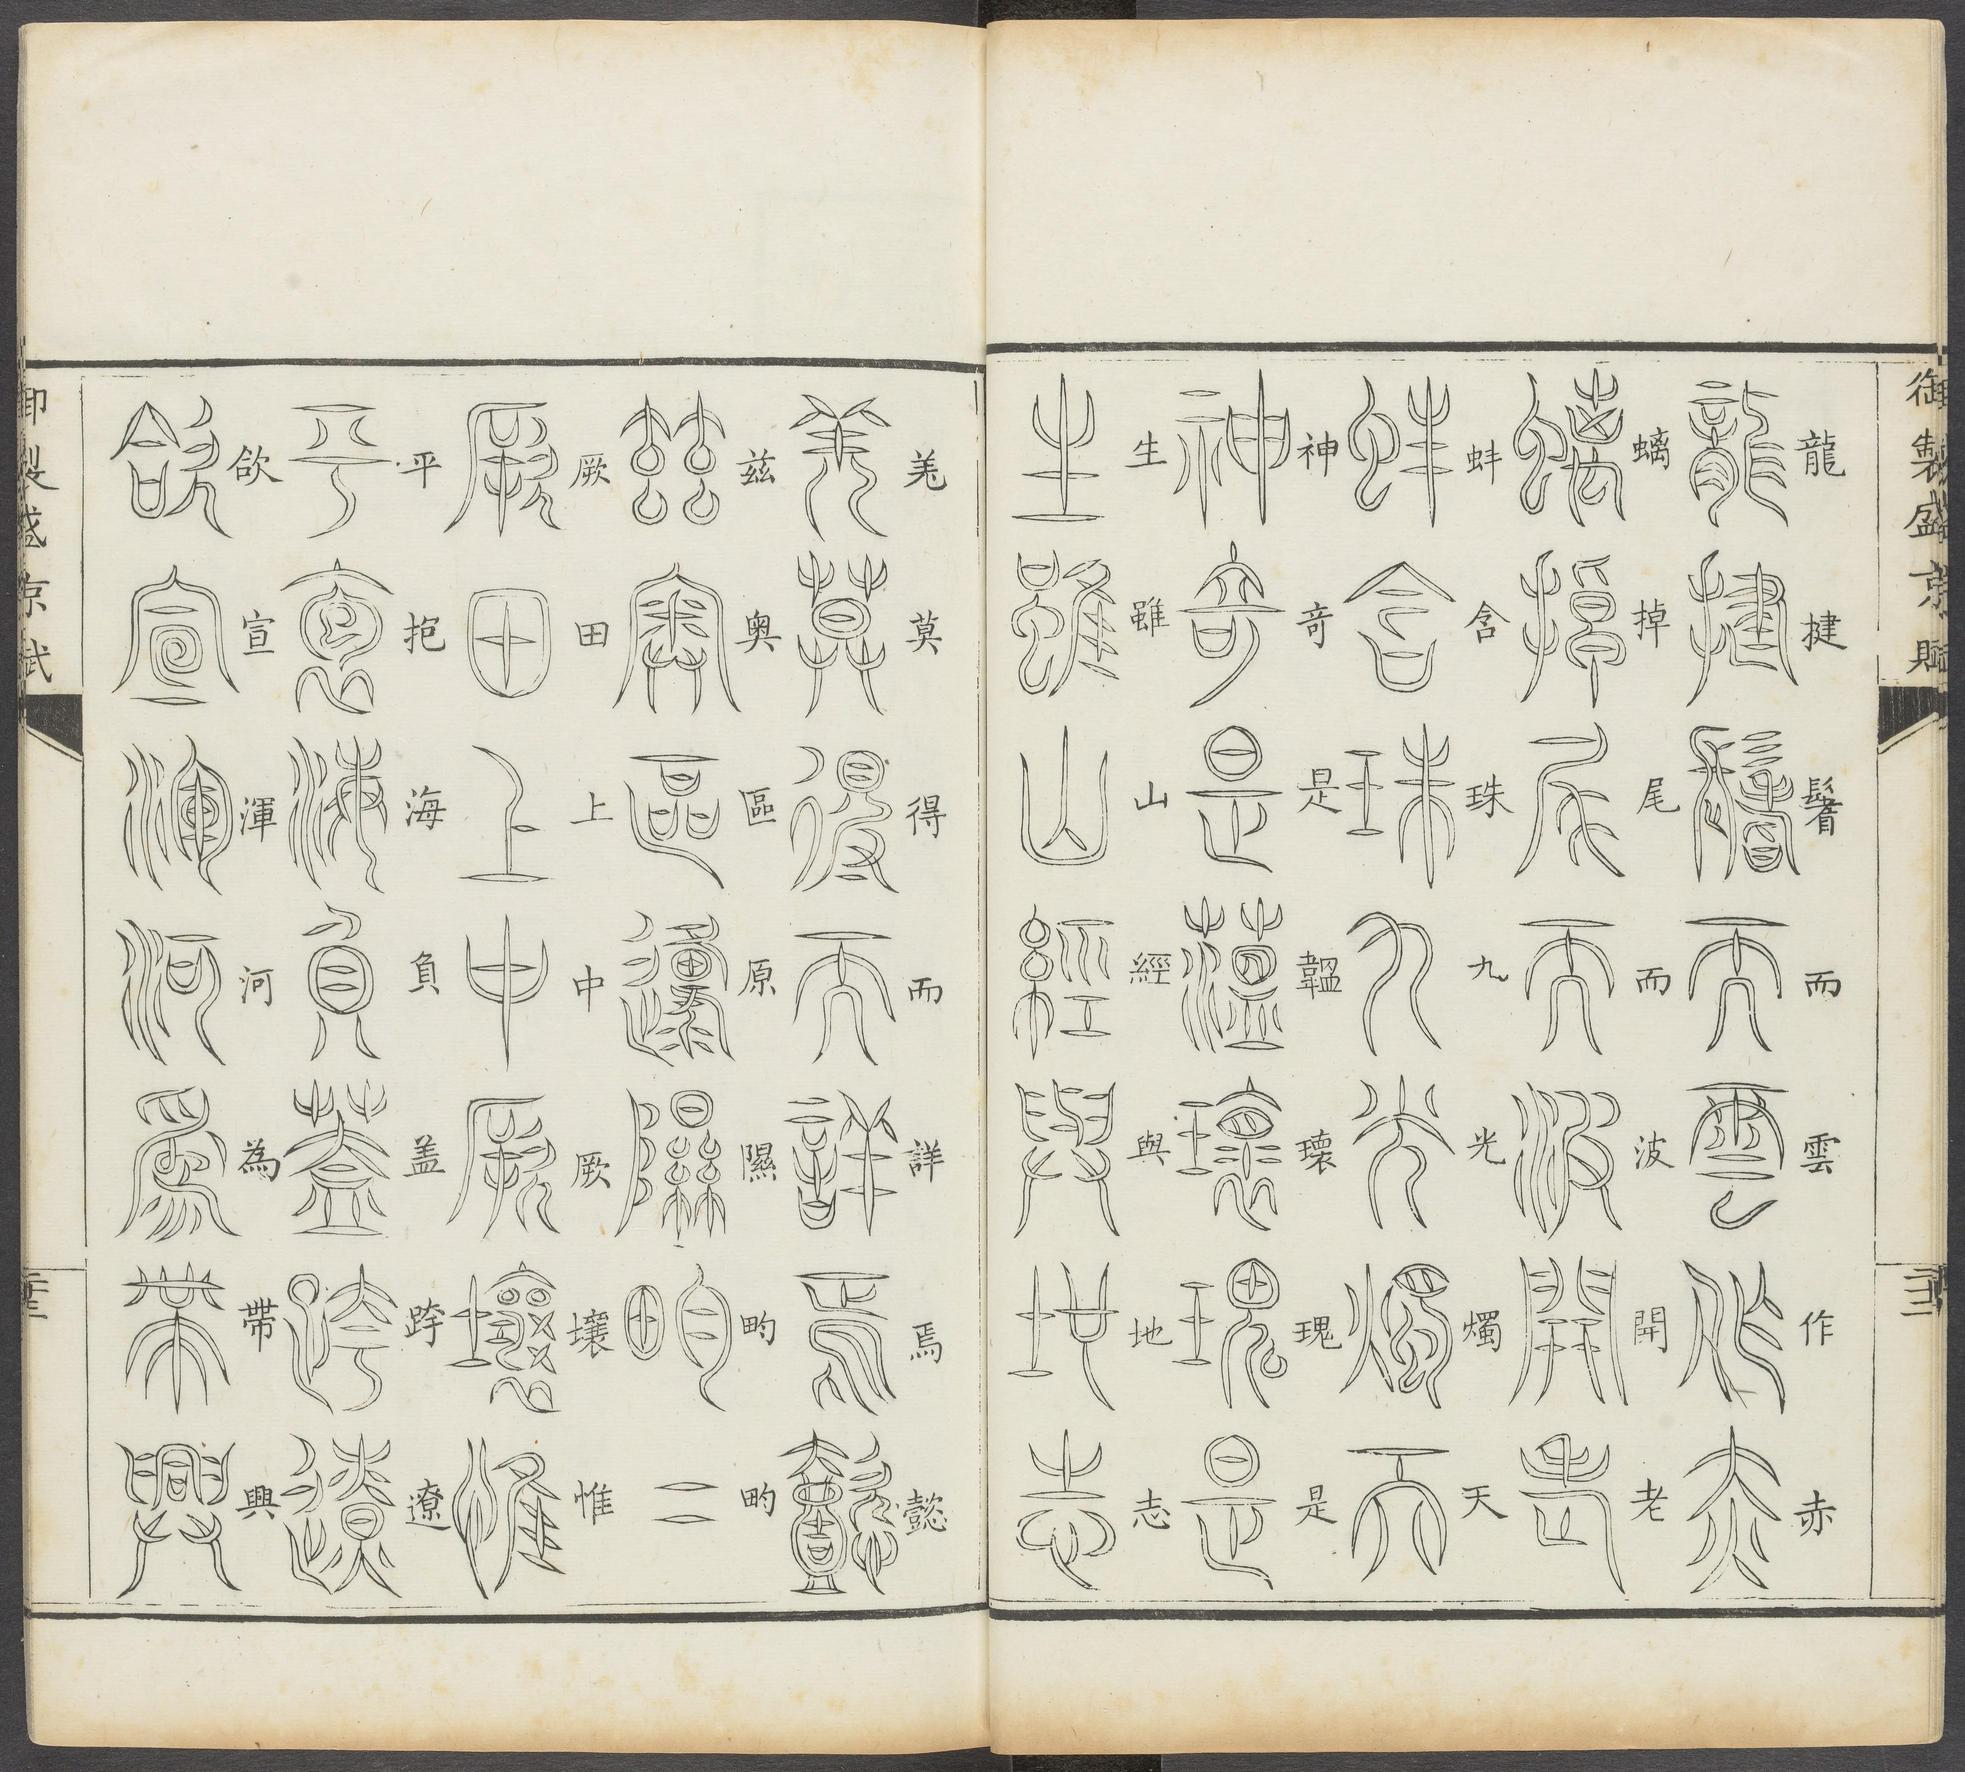 御製盛京賦
龍揵鬐而雲作赤
螭掉尾而波開老
蚌含珠九光燭天
神竒是韞瓌瑰是
生雖山經與地志
羌莫得而詳焉懿
兹奥區原隰畇畇
厥田上中厥壤惟
平抱海負盖跨遼
欱宣渾河為帶興
御製盛京賦